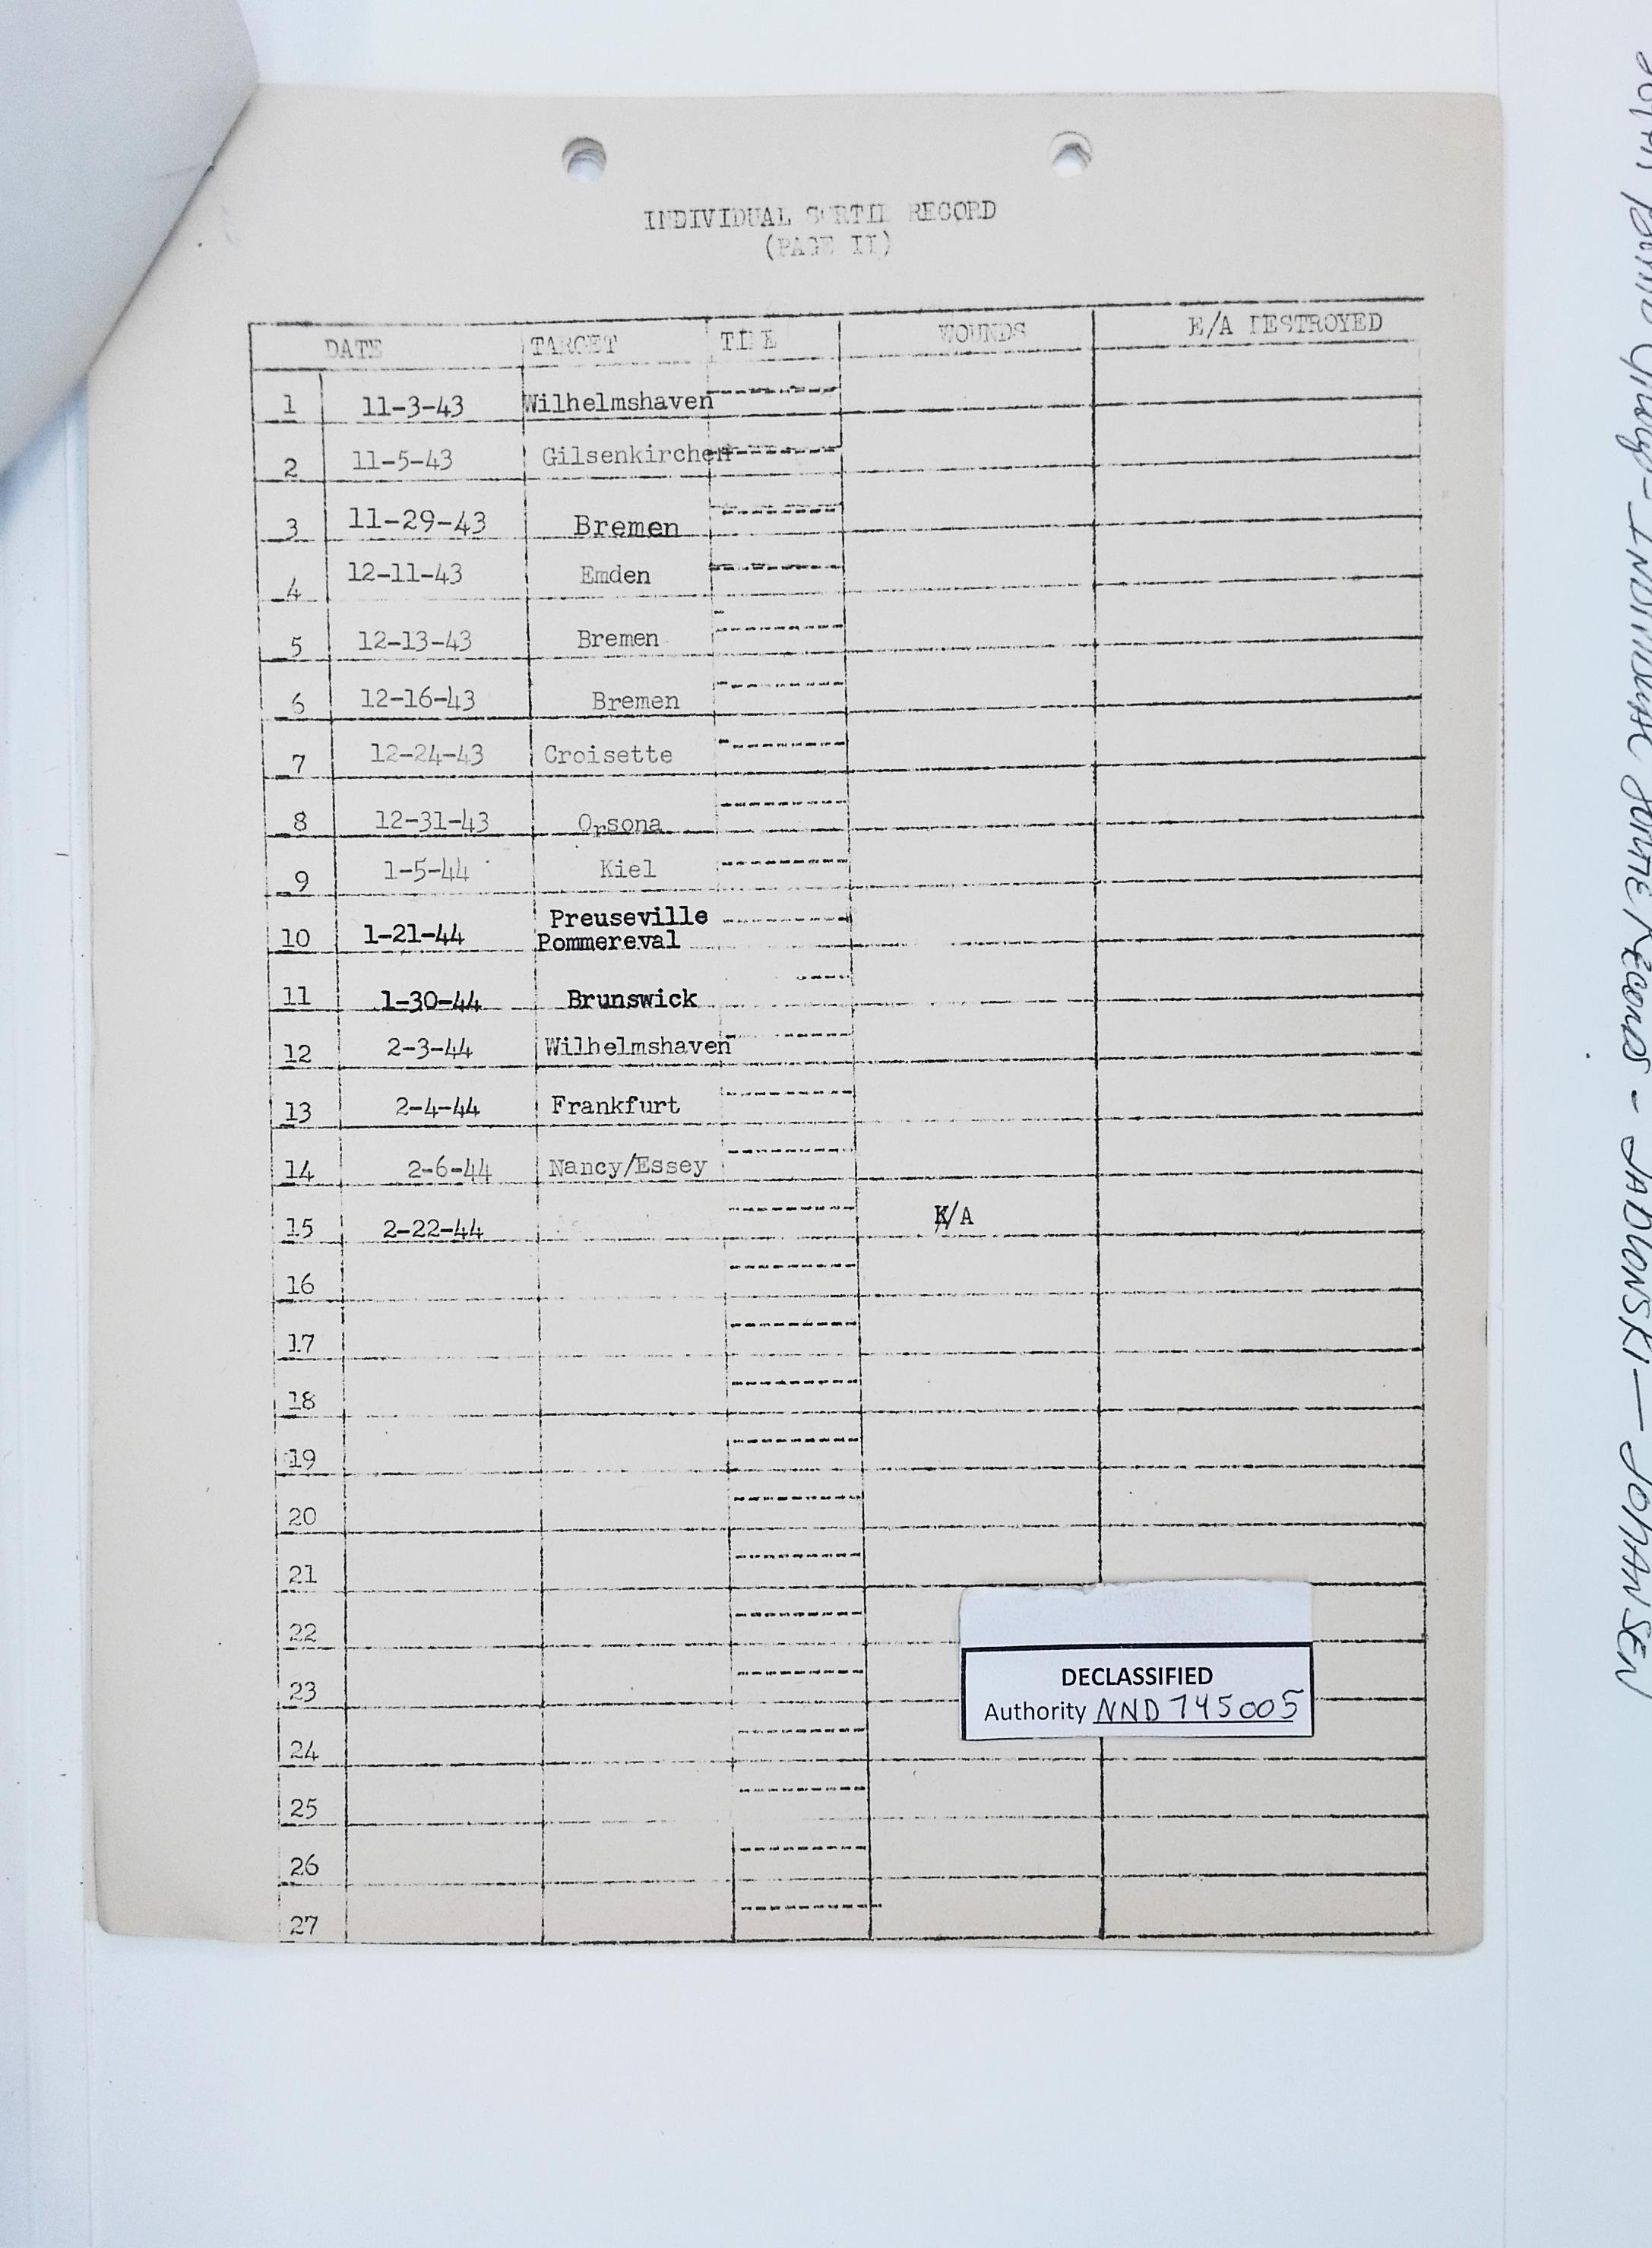 INDIVIDUAL SORTIE RECORD
(PAGE II)
DATE TARGET TIME WOUNDS E/A DESTROYED
1 11-3-43 Wilhelmshaven
2 11-5-43 Gilsenkirchen
3 11-29-43 Bremen
4 12-11-43 Emden
5 12-13-43 Bremen
6 12-16-43 Bremen
7 12-24-43 Croisette
8 12-31-43 Orsona
9 1-5-44 Kiel
10 1-21-44 Preuseville
Pommereval
11 1-30-44 Brunswick
12 2-3-44 Wilhelmshaven
13 2-4-44 Frankfurt
14 2-6-44 Nancy/Essey
15 2-22-44 /A
16
17
18
19
20
21
22
23
24
25
26
27
DECLASSIFIED
Authority NND 745005
BOMB GROUP - INDIVIDUAL SORTIE RECORDS - JADLONSKI — JOHANSEN